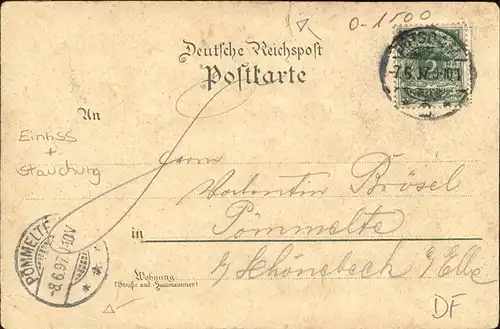 0-1500
Deutsche Reichspost
Postkarte
7.6.97.9-10V
An
Einriss
+
Stauchung
Herrn
Valentin Brösel
in Pömmelte
b/ Schönebeck a/Elbe
PÖMMELTE
8.6.97.
Wohnung
(Straße und Hausnummer)
DF